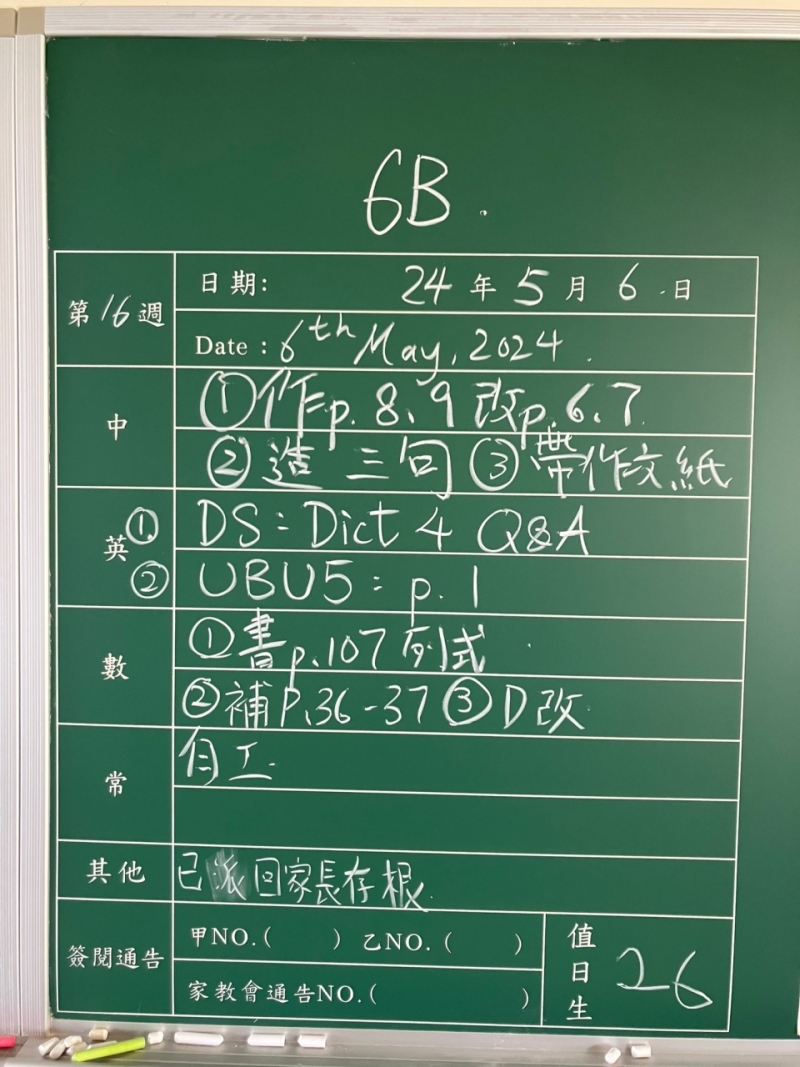 6B.
第16週
日期: 24年5月6.日
Date : 6th May, 2024.
中
①作p.8、9 改p.6、7
②造三句 ③帶作文紙
英
① DS : Dict 4 Q&A
② UBU5 : p. 1
數
①書p.107列式
②補P.36-37 ③D改
常
自工.
其他
已派回家長存根.
簽閱通告
甲NO.( ) 乙NO.( )
家教會通告NO.( )
值日生
26